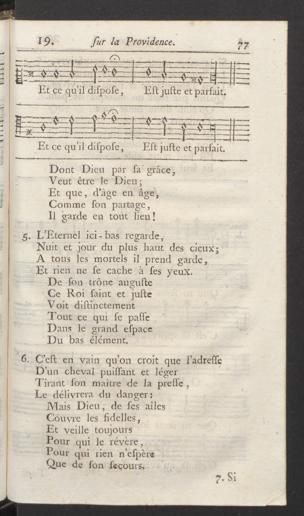 19. ſur la Providence. 77
Et ce qu'il diſpoſe, Eſt juſte et parfait.
Et ce qu'il diſpoſe, Eſt juſte et parfait.
Dont Dieu par ſa grâce,
Veut être le Dieu;
Et que, d'âge en âge,
Comme ſon partage,
Il garde en tout lieu!
5. L'Eternel ici-bas regarde,
Nuit et jour du plus haut des cieux;
A tous les mortels il prend garde,
Et rien ne ſe cache à ſes yeux.
De ſon trône auguſte
Ce Roi ſaint et juſte
Voit diſtinctement
Tout ce qui ſe paſſe
Dans le grand eſpace
Du bas élément.
6. C'eſt en vain qu'on croit que l'adreſſe
D'un cheval puiſſant et léger
Tirant ſon maitre de la preſſe,
Le délivrera du danger:
Mais Dieu, de ſes ailes
Couvre les fidelles,
Et veille toujours
Pour qui le révère,
Pour qui rien n'eſpère
Que de ſon ſecours.
7. Si